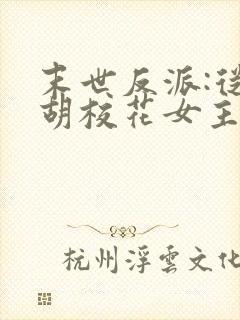 末世反派:從
胡校花女主
杭州浮雲文化